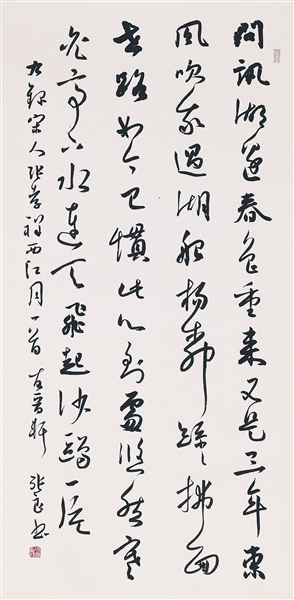 問訊湖邊春色重来又是三年東
風吹我過湖船楊柳絲絲拂面
世路如今已慣此心到處悠然寒
光亭下水連天飛起沙鷗一片
右録宋人張孝祥西江月一首 張書